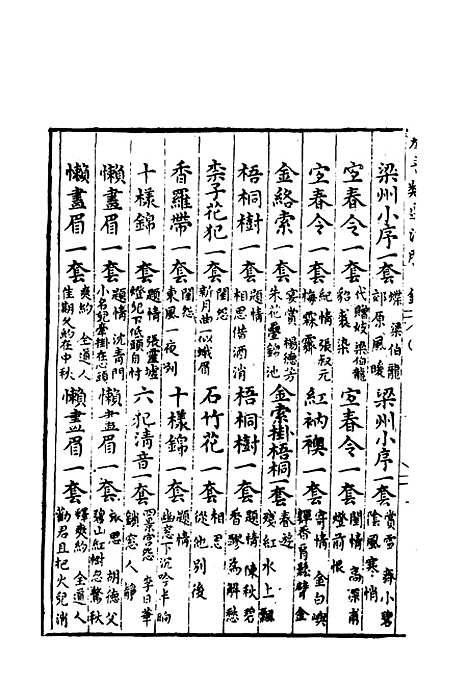 梁州小序一套 蝶 梁伯龍 郊原風暖
梁州小序一套 賞雪 舜小碧 陰風寒悄
宜春令一套 代贈妓梁伯龍 貂裘染
宜春令一套 閨情 高深甫 燈前恨
宜春令一套 紀情 張叔元 梅霖霽
紅衲襖一套 寄情 金白嶼 金
金絡索一套 宴賞 楊德芳 朱花壘錦池
金索掛梧桐一套 春遊 殘紅水上飄
梧桐樹一套 題情 相思借酒消
梧桐樹一套 題情 陳秋碧 香醪為解愁
柰子花犯一套 閨怨 新月曲似蛾眉
石竹花一套 相思 從他別後
香羅帶一套 閨怨 東風一夜
十樣錦一套 題情 幽窓下沉吟半晌
十樣錦一套 題情 張靈墟 燈兒下低頭自忖
六犯清音一套 四景宮怨 李日華 窓人靜
懶畫眉一套 題情 沈青門 小名兒牽掛在心頭
懶畫眉一套 秋思 胡德父 碧山紅樹忽驚秋
懶畫眉一套 爽約 全道人 佳期又約在中秋
懶畫眉一套 釋爽約 全道人 勸君且把火兒消